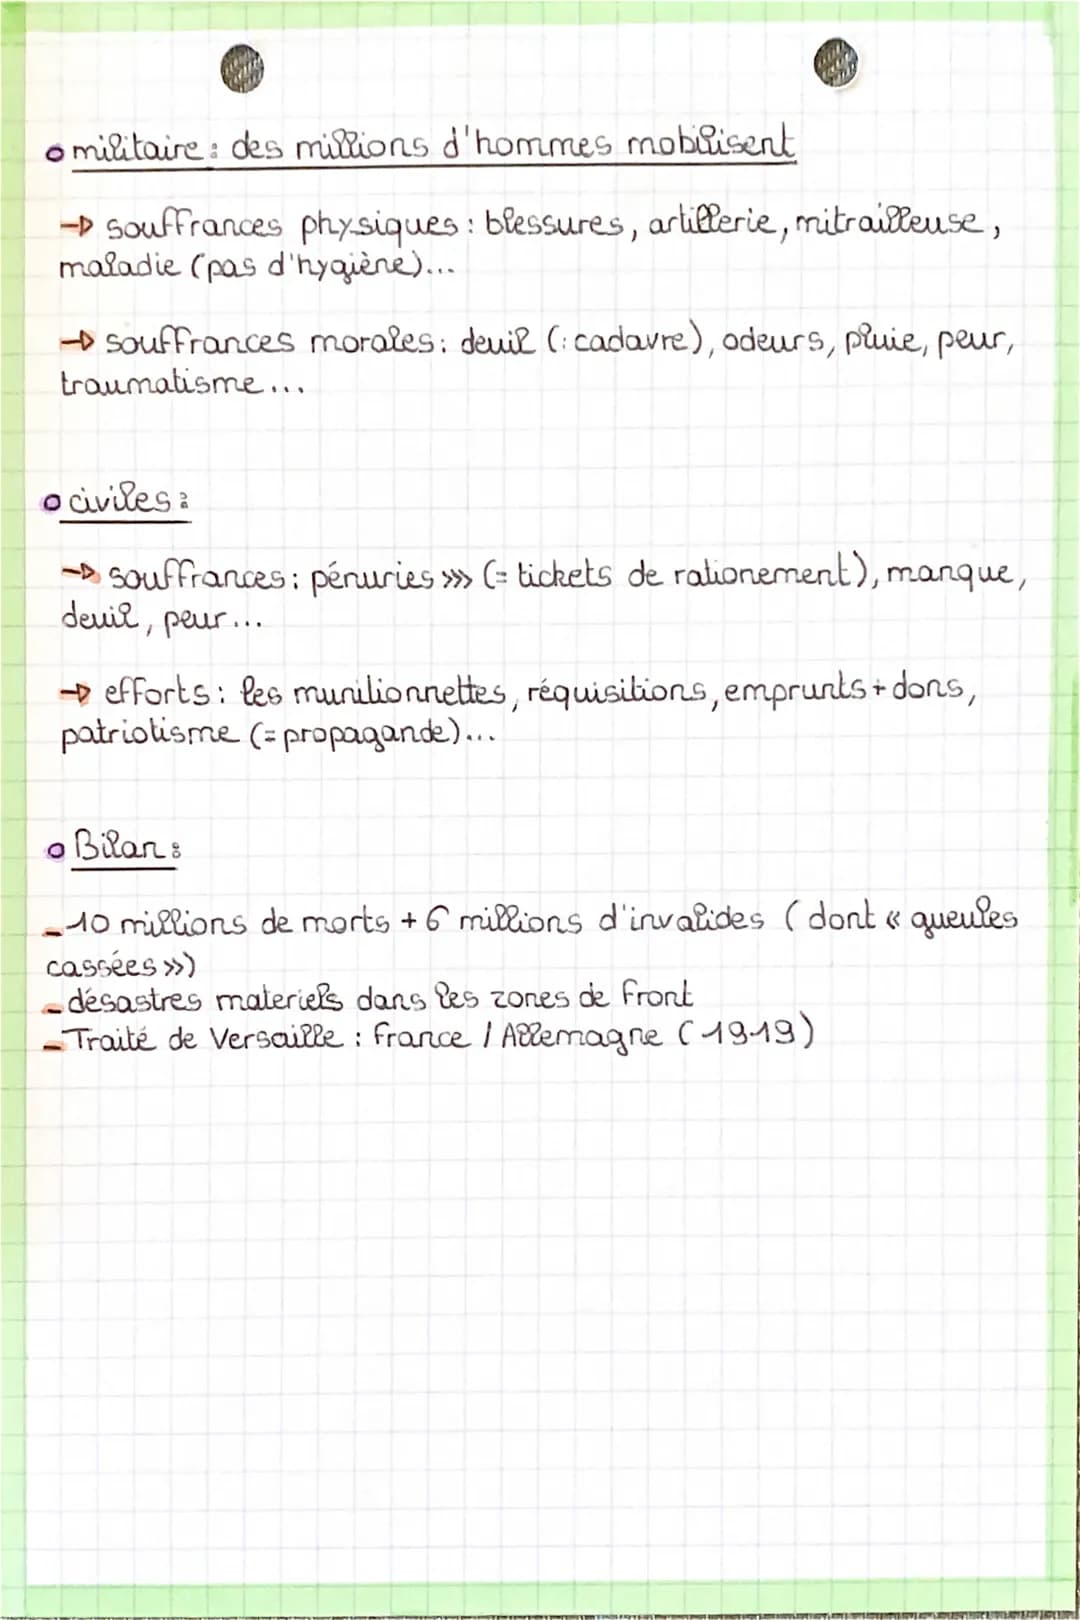 militaire : des millions d'hommes mobilisent
→ souffrances physiques : blessures, artillerie, mitrailleuse,
maladie (pas d'hygiène)...
→ souffrances morales : deuil (: cadavre), odeurs, pluie, peur,
traumatisme...
civiles :
→ souffrances : pénuries >>>> (= tickets de rationement), manque,
deuil, peur...
→ efforts : les munitionnettes, réquisitions, emprunts + dons,
patriotisme (= propagande)...
Bilan :
- 10 millions de morts + 6 millions d'invalides (dont « gueules
cassées »)
- désastres materiels dans les zones de front
- Traité de Versaille : France / Allemagne (1919)